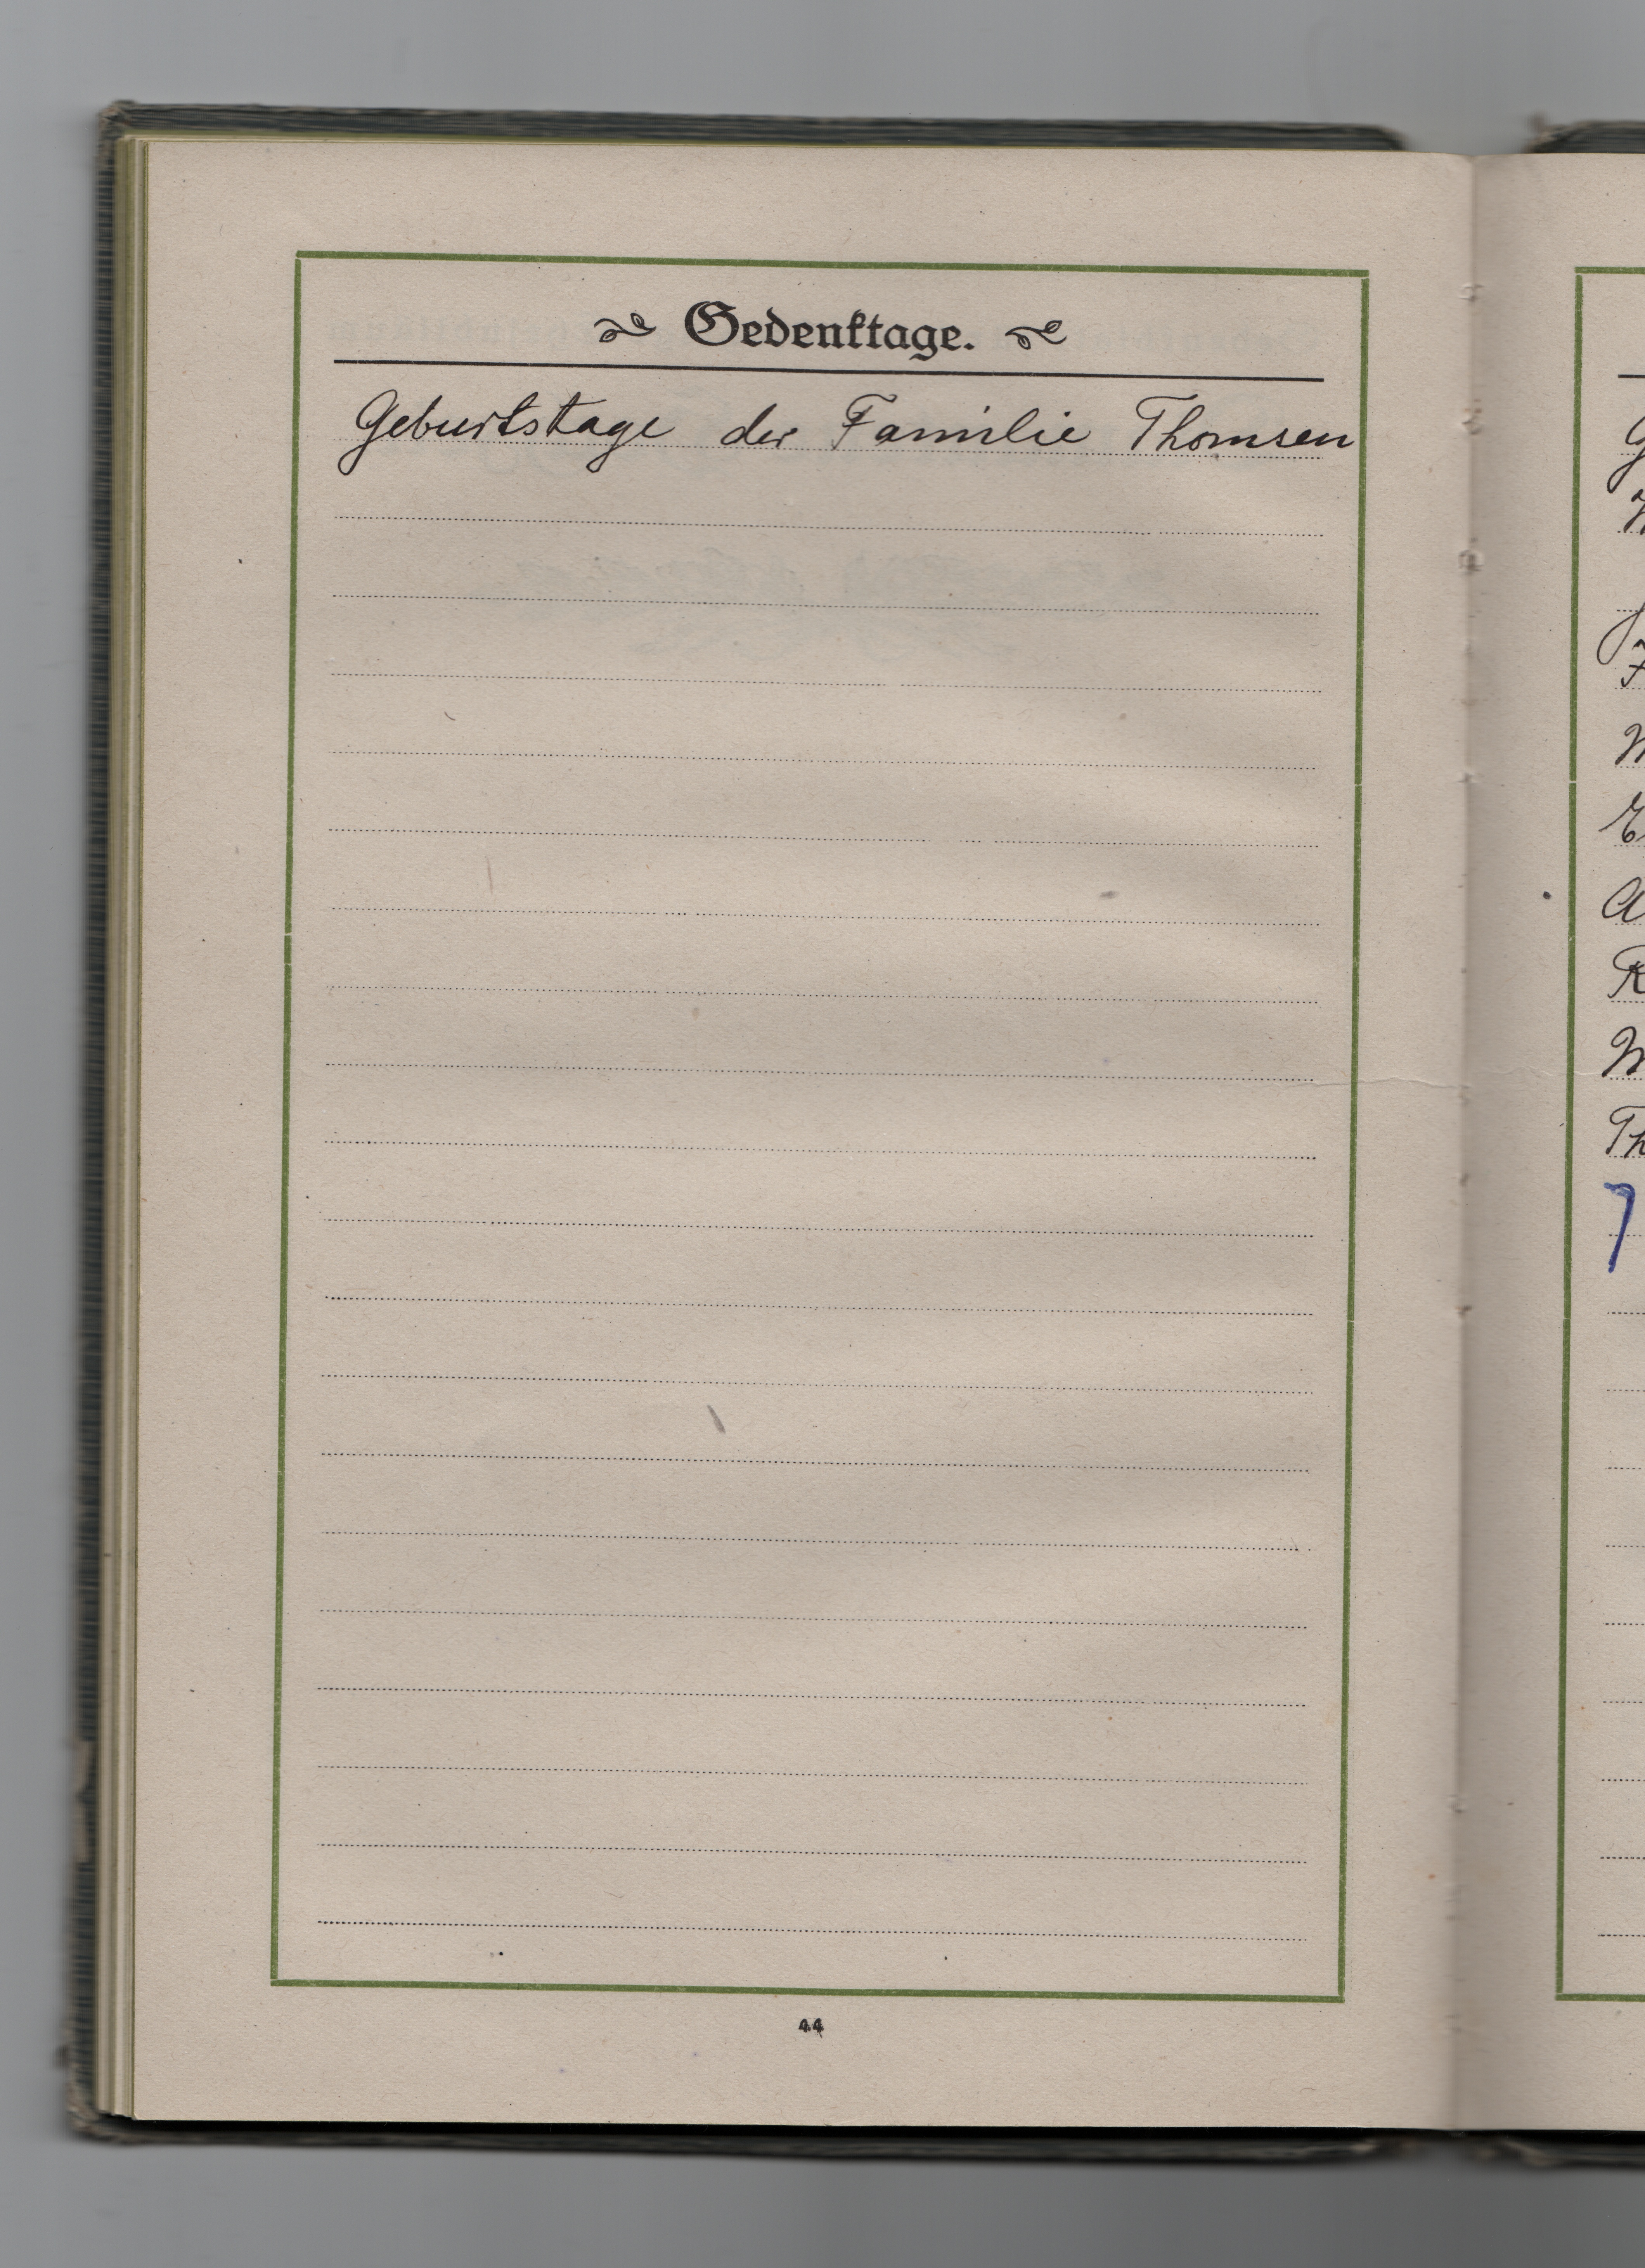 Gedenktage.
Geburtstage der Familie Thomsen
44